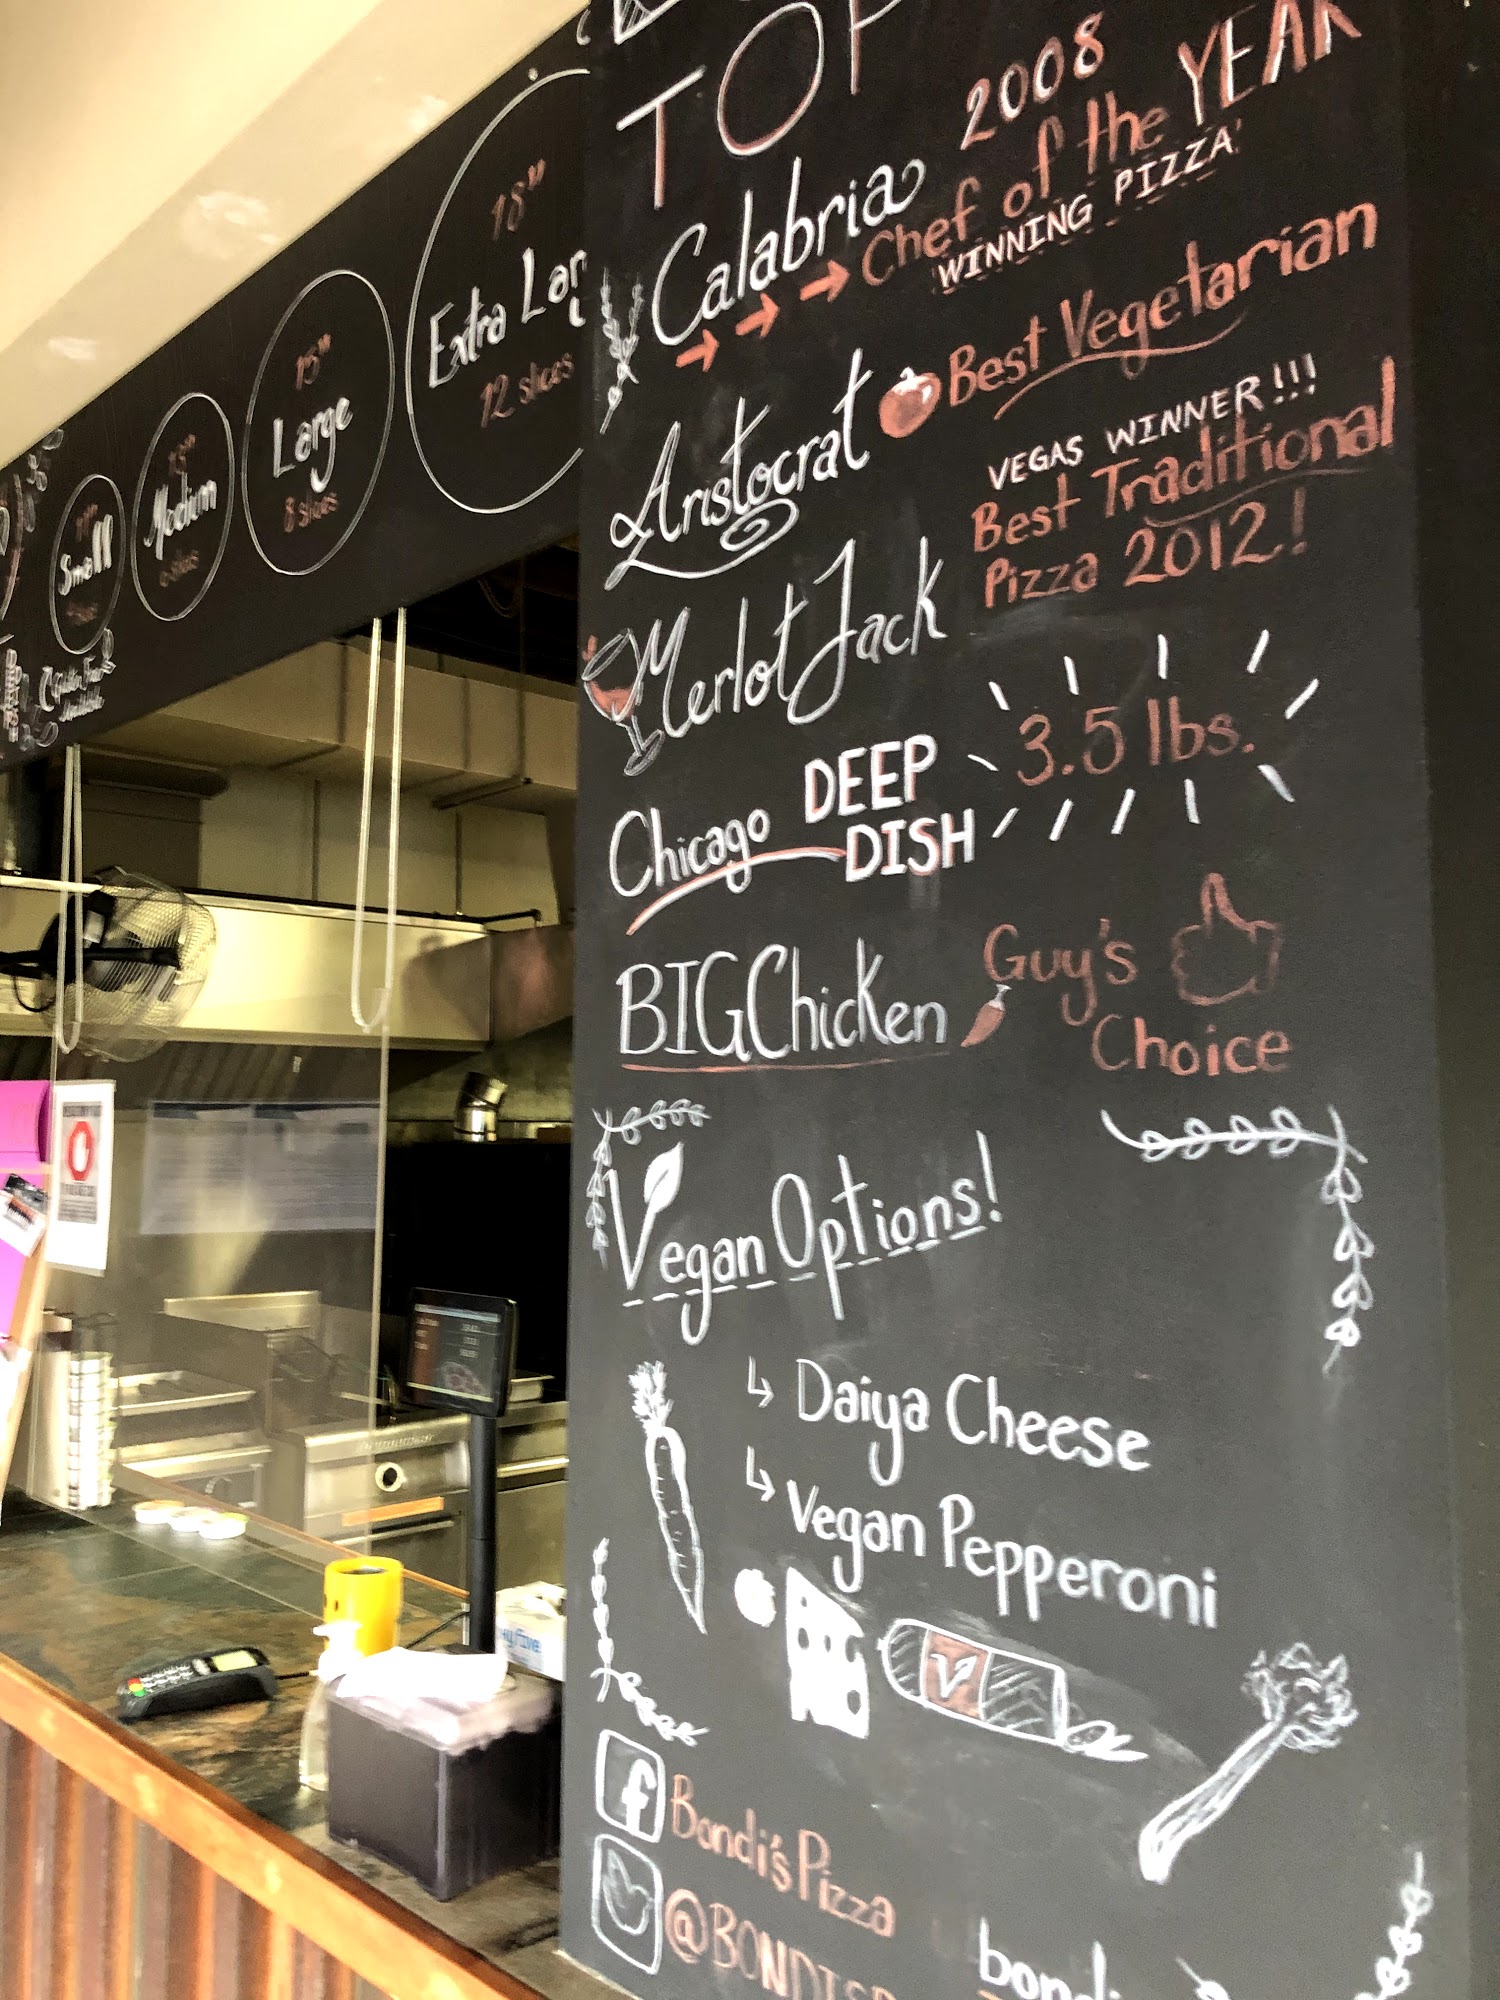 TOP
Calabria
2008
Chef of the YEAR
'WINNING PIZZA'
Aristocrat
Best Vegetarian
Merlot Jack
VEGAS WINNER!!!
Best Traditional
Pizza 2012!
Chicago DEEP DISH
3.5 lbs.
BIG Chicken
Guy's
Choice
Vegan Options!
Daiya Cheese
Vegan Pepperoni
V
f Bondi's Pizza
@BONDIS
bondi
18"
Extra Lar
12 slices
15"
Large
8 slices
13"
Medium
6 slices
Small
Gluten Free
Available